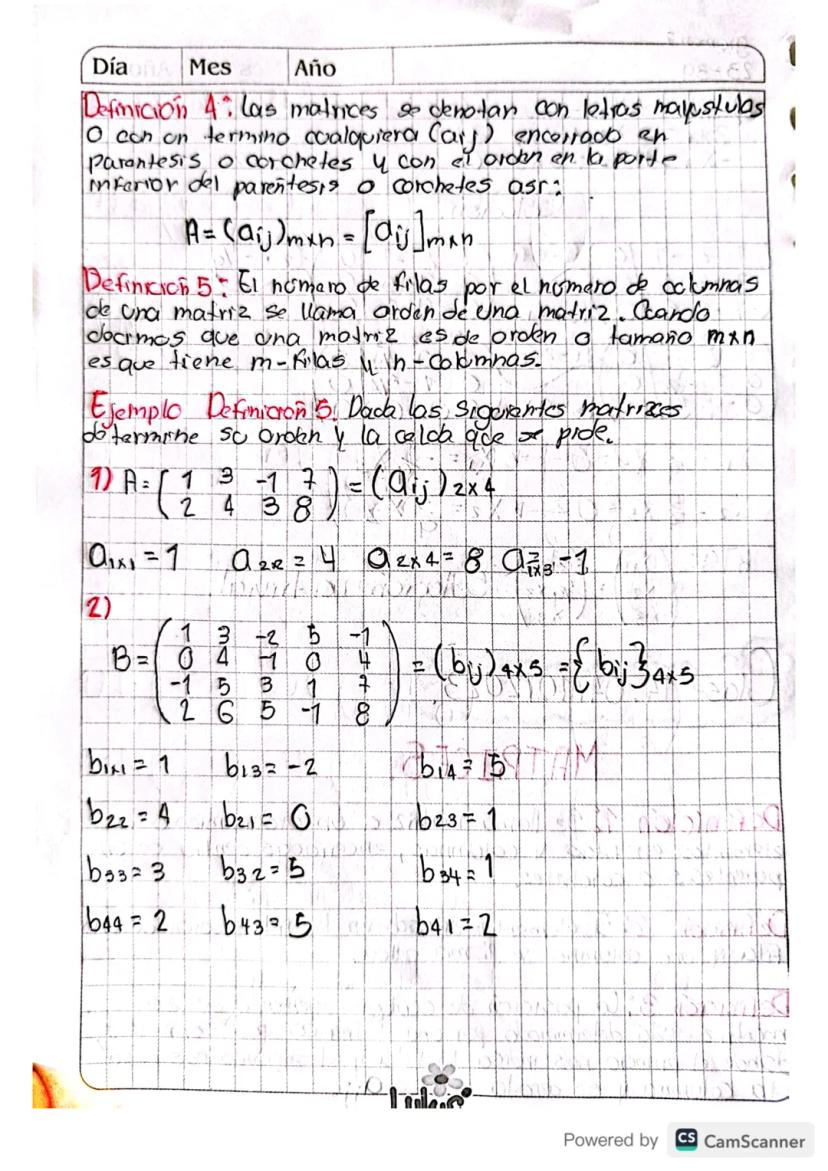 Día Mes Año
Definición 4: Las matrices se denotan con letras mayustulas
O con un termino cualquiera (aij) encerrado en
parantesis o corchetes y con el orden en la parte
inferior del parentesis o corchetes asr:
A = (aij)mxn = [aij]mxn
Definición 5: El número de filas por el número de columnas
de una matriz se llama orden de una matriz. Cuando
decimos que una matriz es de orden o tamaño mxn
es que tiene m-filas y n-columnas.
Ejemplo Definición 5. Dada las siguientes matrizes
determine su orden y la celda que se pide.
1) A = ( 1 3 -1 7
2 4 3 8 ) = (aij) 2x4
a1x1 = 1 a2x2 = 4 a2x4 = 8 a1x3 = -1
2)
B = ( 1 3 -2 5 -1
0 4 -1 0 4
-1 5 3 1 7
2 6 5 -1 8 ) = (bij)4x5 = {bij}4x5
b1x1 = 1 b13 = -2 b14 = 5
b22 = 4 b21 = 0 b23 = 1
b33 = 3 b32 = 5 b34 = 1
b44 = 2 b43 = 5 b41 = 2
Powered by CS CamScanner